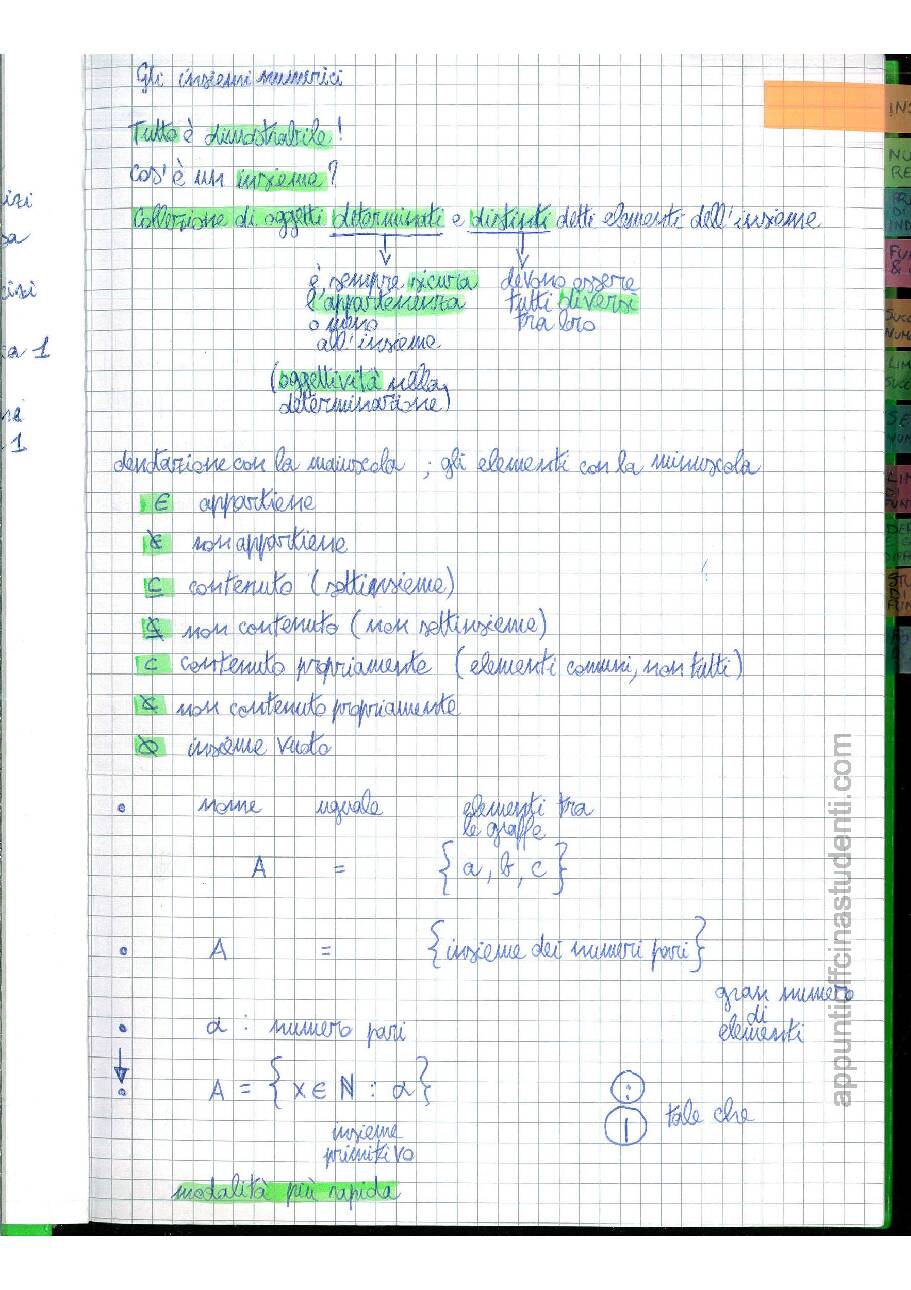 Gli insiemi numerici
Tutto è dimostrabile!
Cos'è un insieme?
Collezione di oggetti determinati e distinti detti elementi dell'insieme
è sempre sicura
l'appartenenza
o meno
all'insieme
(oggettività nella
determinazione)
devono essere
tutti diversi
tra loro
denotazione con la maiuscola ; gli elementi con la minuscola
∈ appartiene
∉ non appartiene
⊆ contenuto (sottinsieme)
⊈ non contenuto (non sottinsieme)
⊂ contenuto propriamente (elementi comuni, non tutti)
⊄ non contenuto propriamente
∅ insieme vuoto
• nome uguale elementi tra
le graffe
A = {a, b, c}
• A = {insieme dei numeri pari}
gran numero
di
elementi
• α : numero pari
• A = {x ∈ ℕ : α}
insieme
primitivo
:
| tale che
modalità più rapida
appuntiofficinastudenti.com